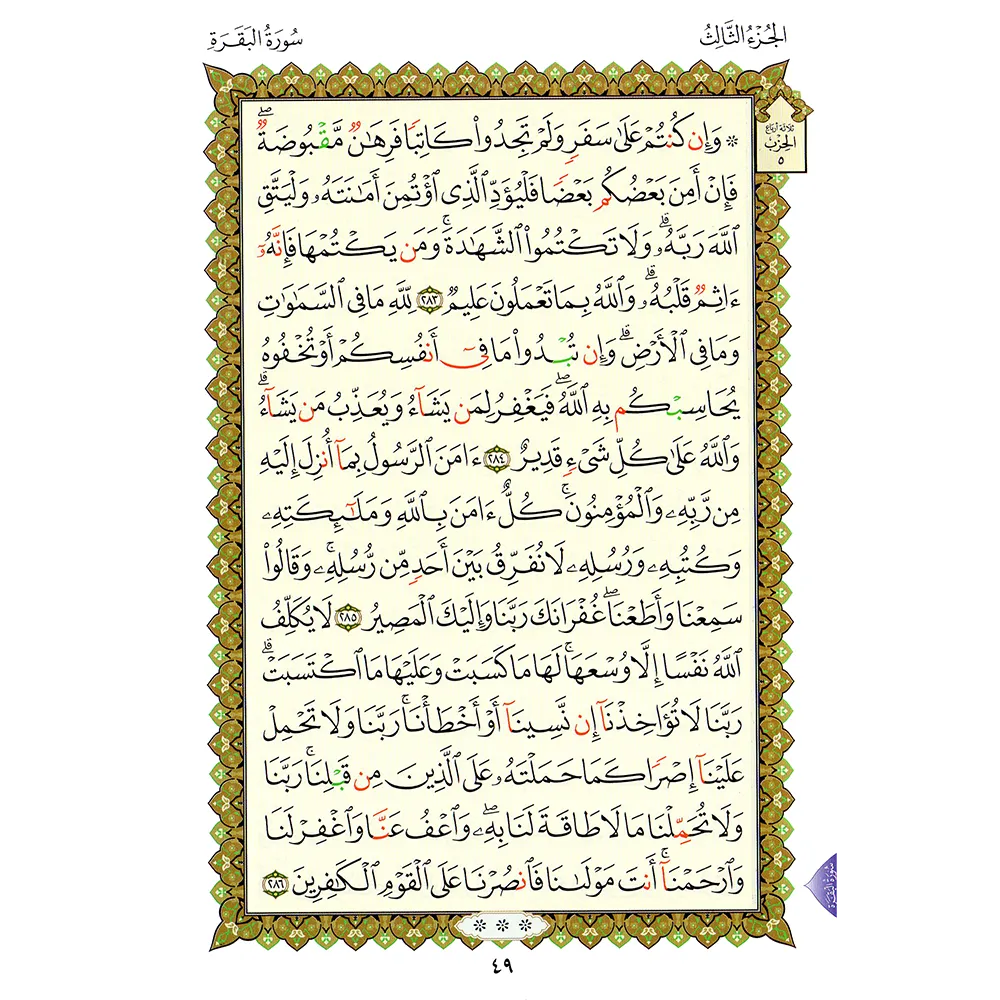 الجُزْءُ الثَّالِثُ
سُورَةُ البَقَرَةِ
ثلاثة أرباع
الحِزْبُ
٥
۞ وَإِن كُنتُمْ عَلَىٰ سَفَرٍ وَلَمْ تَجِدُوا۟ كَاتِبًا فَرِهَـٰنٌ مَّقْبُوضَةٌ ۖ
فَإِنْ أَمِنَ بَعْضُكُم بَعْضًا فَلْيُؤَدِّ ٱلَّذِى ٱؤْتُمِنَ أَمَـٰنَتَهُۥ وَلْيَتَّقِ
ٱللَّهَ رَبَّهُۥ ۗ وَلَا تَكْتُمُوا۟ ٱلشَّهَـٰدَةَ ۚ وَمَن يَكْتُمْهَا فَإِنَّهُۥٓ
ءَاثِمٌ قَلْبُهُۥ ۗ وَٱللَّهُ بِمَا تَعْمَلُونَ عَلِيمٌ ٢٨٣ لِّلَّهِ مَا فِى ٱلسَّمَـٰوَٰتِ
وَمَا فِى ٱلْأَرْضِ ۗ وَإِن تُبْدُوا۟ مَا فِىٓ أَنفُسِكُمْ أَوْ تُخْفُوهُ
يُحَاسِبْكُم بِهِ ٱللَّهُ ۖ فَيَغْفِرُ لِمَن يَشَآءُ وَيُعَذِّبُ مَن يَشَآءُ ۗ
وَٱللَّهُ عَلَىٰ كُلِّ شَىْءٍ قَدِيرٌ ٢٨٤ ءَامَنَ ٱلرَّسُولُ بِمَآ أُنزِلَ إِلَيْهِ
مِن رَّبِّهِۦ وَٱلْمُؤْمِنُونَ ۚ كُلٌّ ءَامَنَ بِٱللَّهِ وَمَلَـٰٓئِكَتِهِۦ
وَكُتُبِهِۦ وَرُسُلِهِۦ لَا نُفَرِّقُ بَيْنَ أَحَدٍ مِّن رُّسُلِهِۦ ۚ وَقَالُوا۟
سَمِعْنَا وَأَطَعْنَا ۖ غُفْرَانَكَ رَبَّنَا وَإِلَيْكَ ٱلْمَصِيرُ ٢٨٥ لَا يُكَلِّفُ
ٱللَّهُ نَفْسًا إِلَّا وُسْعَهَا ۚ لَهَا مَا كَسَبَتْ وَعَلَيْهَا مَا ٱكْتَسَبَتْ ۗ
رَبَّنَا لَا تُؤَاخِذْنَآ إِن نَّسِينَآ أَوْ أَخْطَأْنَا ۚ رَبَّنَا وَلَا تَحْمِلْ
عَلَيْنَآ إِصْرًا كَمَا حَمَلْتَهُۥ عَلَى ٱلَّذِينَ مِن قَبْلِنَا ۚ رَبَّنَا
وَلَا تُحَمِّلْنَا مَا لَا طَاقَةَ لَنَا بِهِۦ ۖ وَٱعْفُ عَنَّا وَٱغْفِرْ لَنَا
وَٱرْحَمْنَآ ۚ أَنتَ مَوْلَىٰنَا فَٱنصُرْنَا عَلَى ٱلْقَوْمِ ٱلْكَـٰفِرِينَ ٢٨٦
سُورَةُ البَقَرَةِ
٤٩